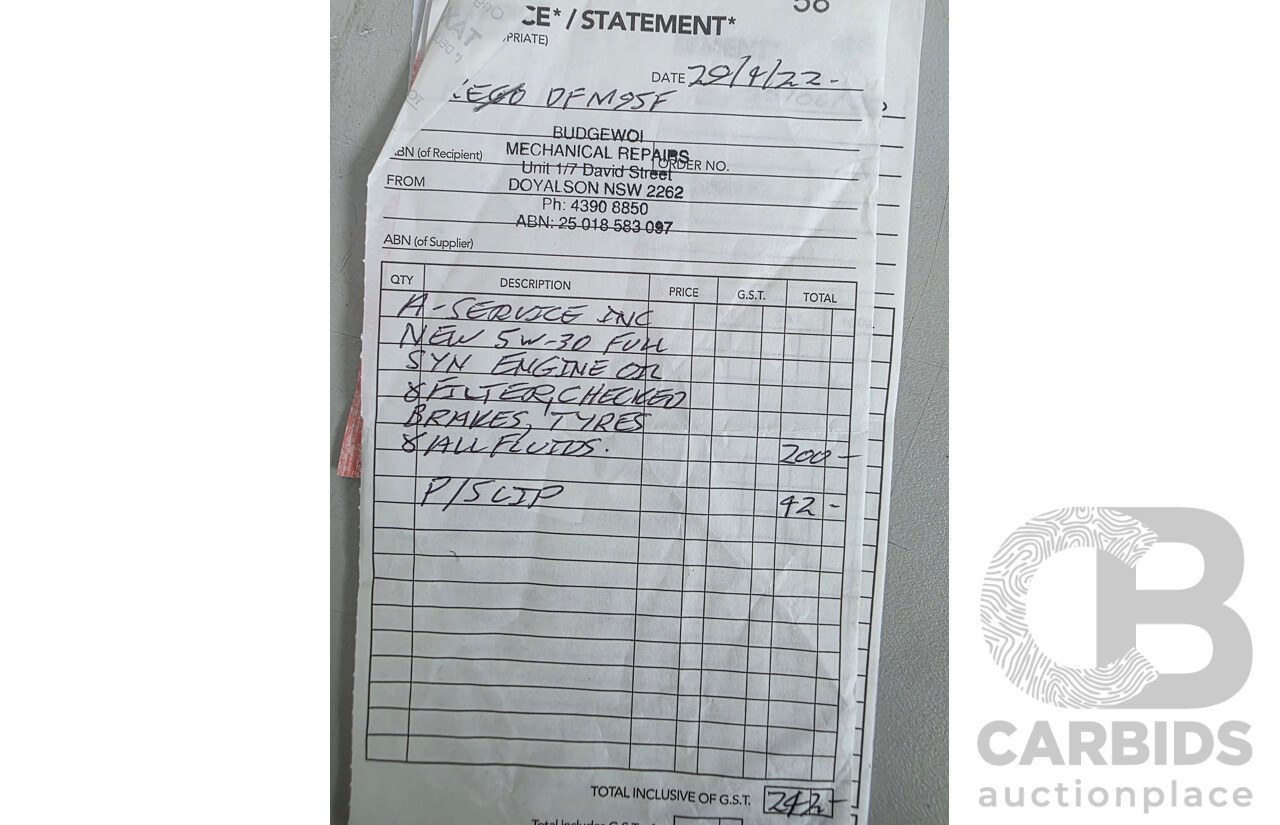 58
CE* / STATEMENT*
PRIATE)
TAX
DATE 29/4/22-
DFM95F
BUDGEWOI
MECHANICAL REPAIRS
ABN (of Recipient)
ORDER NO.
Unit 1/7 David Street
FROM
DOYALSON NSW 2262
Ph: 4390 8850
ABN: 25 018 583 097
ABN (of Supplier)
QTY DESCRIPTION PRICE G.S.T. TOTAL
A-SERVICE INC
NEW 5W-30 FULL
SYN ENGINE OIL
& FILTER, CHECKED
BRAKES, TYRES
& ALL FLUIDS. 200-
P/SLIP 42-
TOTAL INCLUSIVE OF G.S.T. 242-
CB
CARBIDS
auctionplace